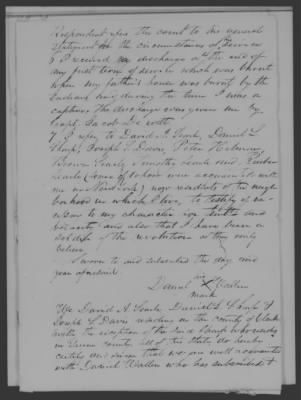 Respondent refers the court to his general
statement the circumstances of service
6 I received no discharge at the end of
any first term of service which was burnt
when my father's house was burnt by the
Indians and during the time I was a
captive. The discharge was given me by
Capt. Jacob
7 I refer to David A. Daniel L.
Sharp, Joseph L. Davis, Peter
Timothy and Reuben
(some of whom were acquainted with
me in New York) now residents of the neigh
borhood in which I live, to testify of
my character for truth and
veracity and also that I have been a
soldier of the revolution as they verily
believe.
Sworn to and subscribed the day and
year aforesaid.
his
Daniel X Wallen
mark
We David A. Daniel L. Sharp &
Joseph L. Davis residing in the county of Clark
with the exception of the said Sharp who resides
in Green county all of this state do hereby
certify and swear that we are well acquainted
with Daniel Wallen who has subscribed &